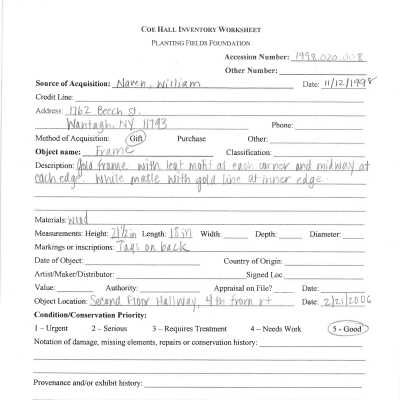 COE HALL INVENTORY WORKSHEET
PLANTING FIELDS FOUNDATION
Accession Number: 1998.020.008
Other Number:
Source of Acquisition: Naven, William Date: 11/12/1998
Credit Line:
Address: 1762 Beech St.
Wantagh, NY 11793 Phone:
Method of Acquisition: Gift Purchase Other:
Object name: Frame Classification:
Description: gold frame with leaf motif at each corner and midway at
each edge. White matte with gold line at inner edge.
Materials: wood
Measurements: Height: 21 1/2 in Length: 18 in Width: Depth: Diameter:
Markings or inscriptions: Tags on back
Date of Object: Country of Origin:
Artist/Maker/Distributor: Signed Loc.
Value: Authority: Appraisal on File? Date:
Object Location: Second Floor Hallway, 4th from rt Date: 2/21/2006
Condition/Conservation Priority:
1 – Urgent 2 – Serious 3 – Requires Treatment 4 – Needs Work 5 - Good
Notation of damage, missing elements, repairs or conservation history:
Provenance and/or exhibit history: